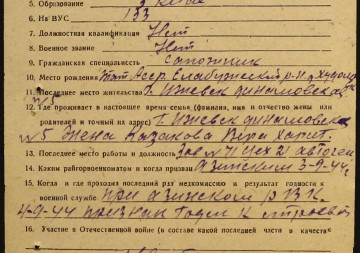 5. Образование 3 класса
6. На ВУС 133
7. Должностная квалификация Нет
8. Военное звание Нет
9. Гражданская специальность Сапожник
10. Место рождения Тат Асср. Елабужский р-н д.
11. Последнее место жительства г. Ижевск Динамовская
№5
12. Где проживает в настоящее время семья (фамилия, имя и отчество жены или
родителей и точный их адрес) г. Ижевск Динамовск
№5 Жена Казакова Вера Харит.
13. Последнее место работы и должность Зав №71 Цех 21
14. Каким райгорвоенкоматом и когда призван Азинским 3-9-44г.
15. Когда и где проходил последний раз медкомиссию и результат годности к
военной службе При Азинском Р.В.К.
4-9-44 признан годен к строевой
16. Участие в Отечественной войне (в составе какой последней части, в качеств